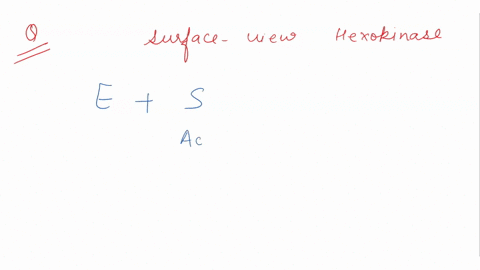 Q surface-view Hexokinase
E + S
Ac